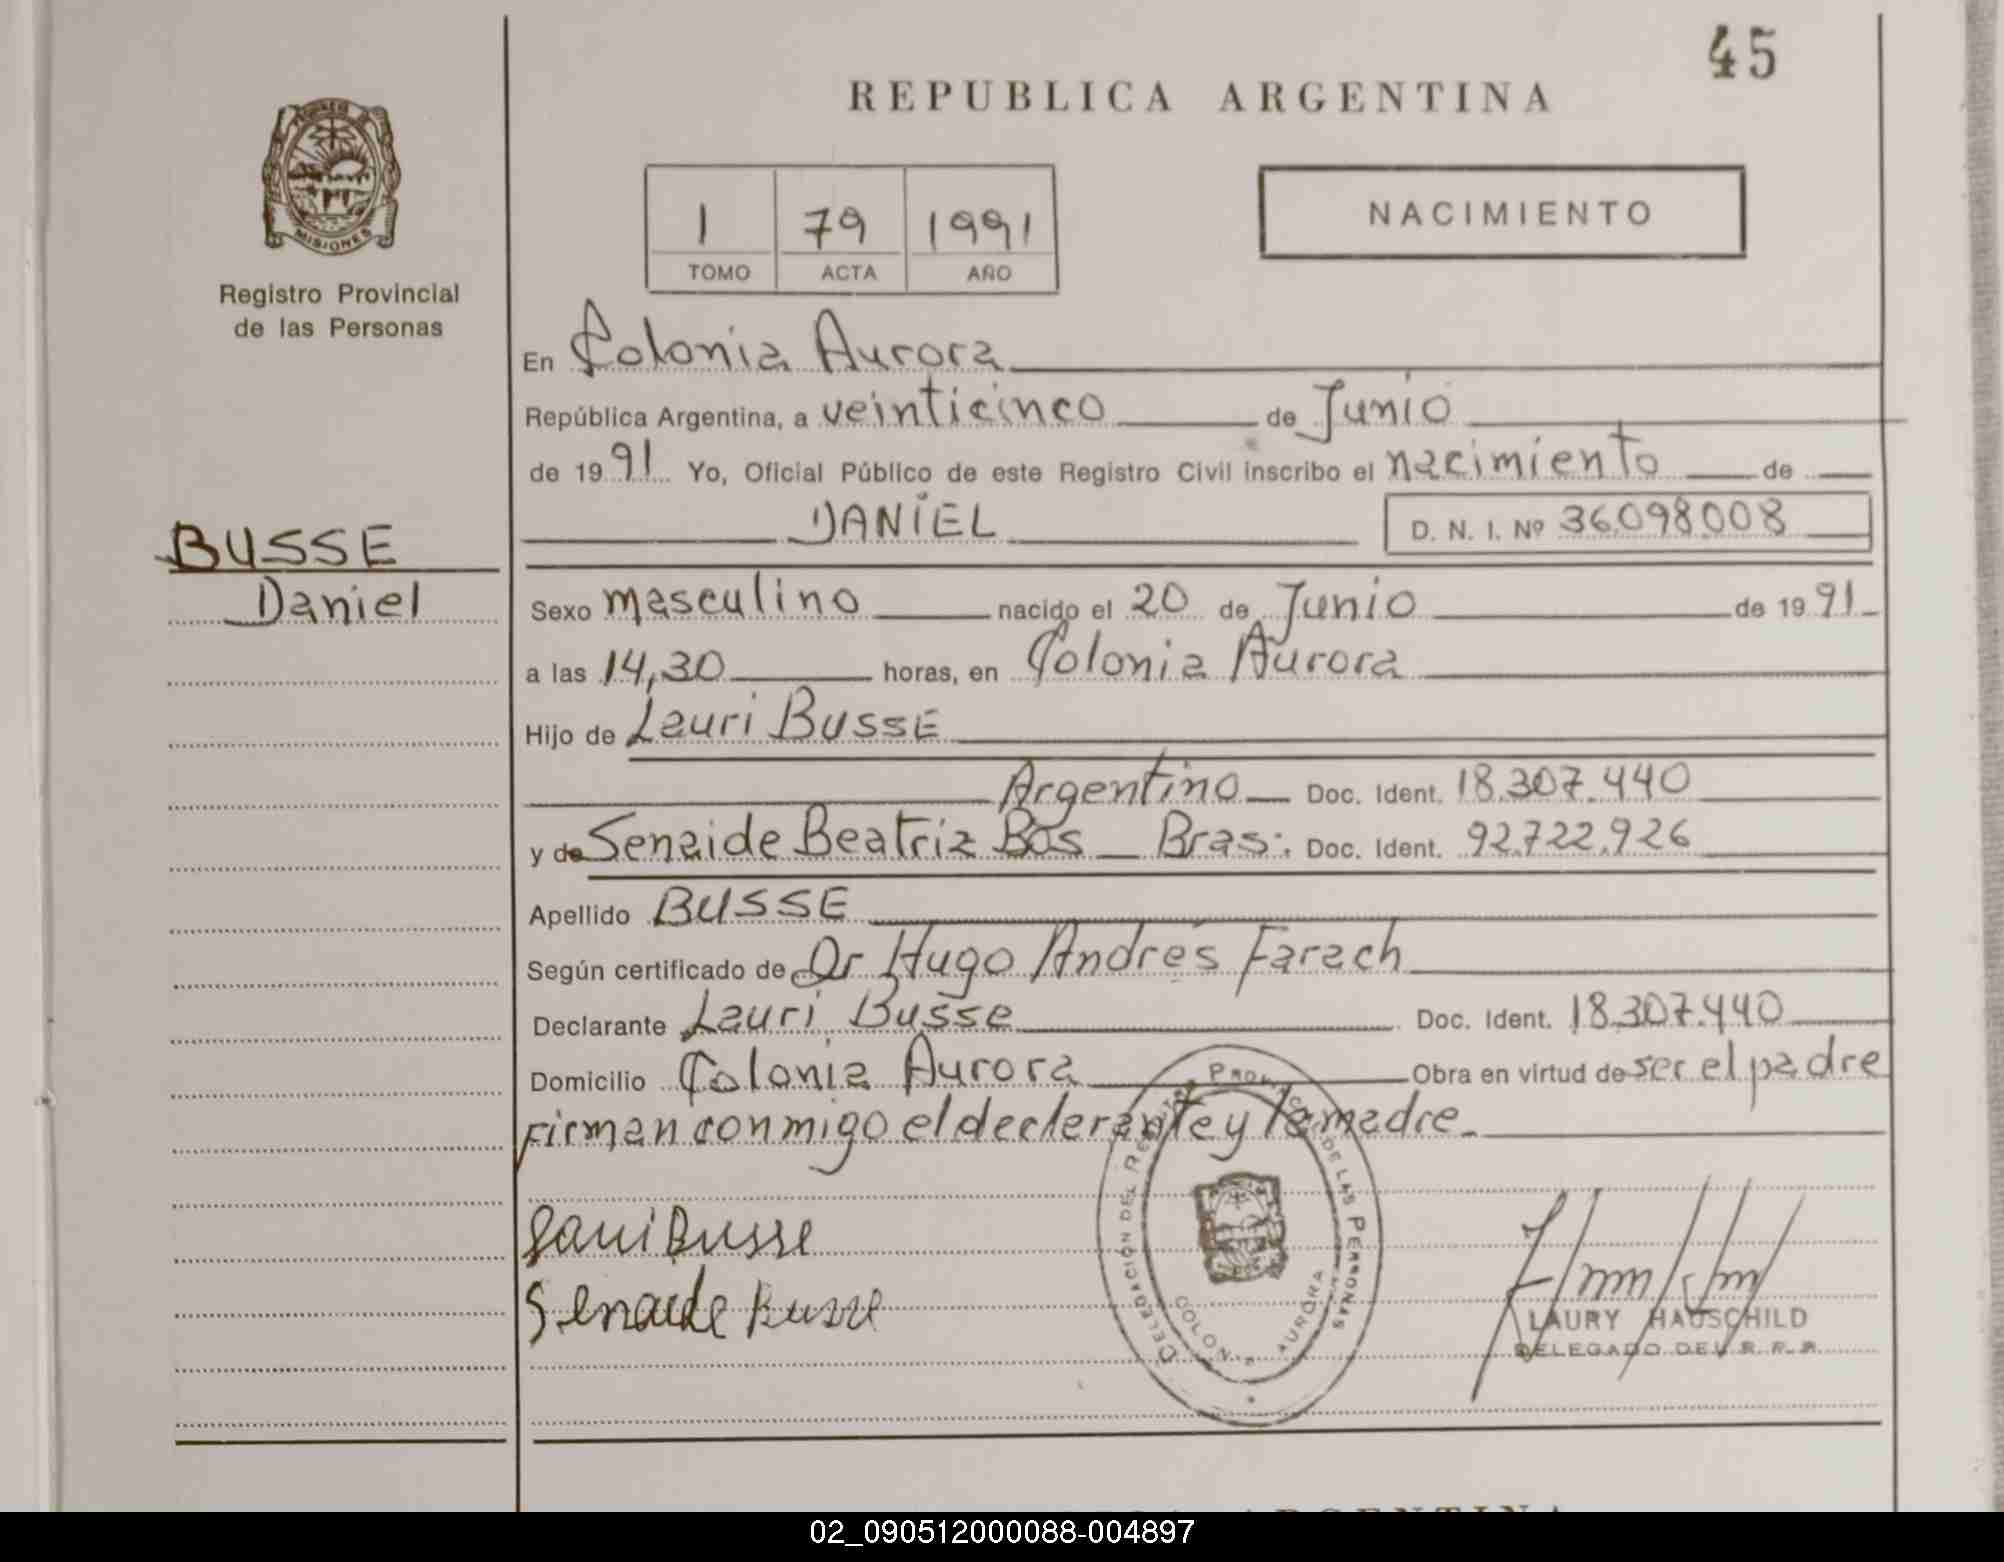 45
REPUBLICA ARGENTINA
MISIONES
Registro Provincial
de las Personas
1 79 1991
TOMO ACTA AÑO
NACIMIENTO
En Colonia Aurora
República Argentina, a veinticinco de Junio
de 1991 Yo, Oficial Público de este Registro Civil inscribo el nacimiento de
DANIEL D. N. I. Nº 36.098.008
BUSSE
Daniel
Sexo masculino nacido el 20 de Junio de 1991
a las 14,30 horas, en Colonia Aurora
Hijo de Lauri BUSSE
Argentino Doc. Ident. 18.307.440
y de Senaide Beatriz Bos Bras: Doc. Ident. 92.722.926
Apellido BUSSE
Según certificado de Dr Hugo Andrés Farach
Declarante Lauri Busse Doc. Ident. 18.307.440
Domicilio Colonia Aurora Obra en virtud de ser el padre
Firman conmigo el declarante y la madre.
Lauri Busse
Senaide Busse
DELEGACIÓN DEL REGISTRO PROVINCIAL DE LAS PERSONAS
COLONIA AURORA
LAURY HAUSCHILD
DELEGADO DEL R. P. P.
ARGENTINA
02_090512000088-004897